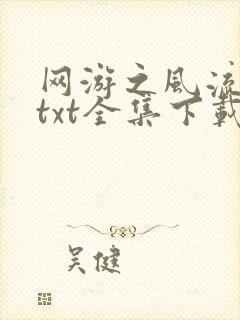 网游之风流
txt全集下载
吴健